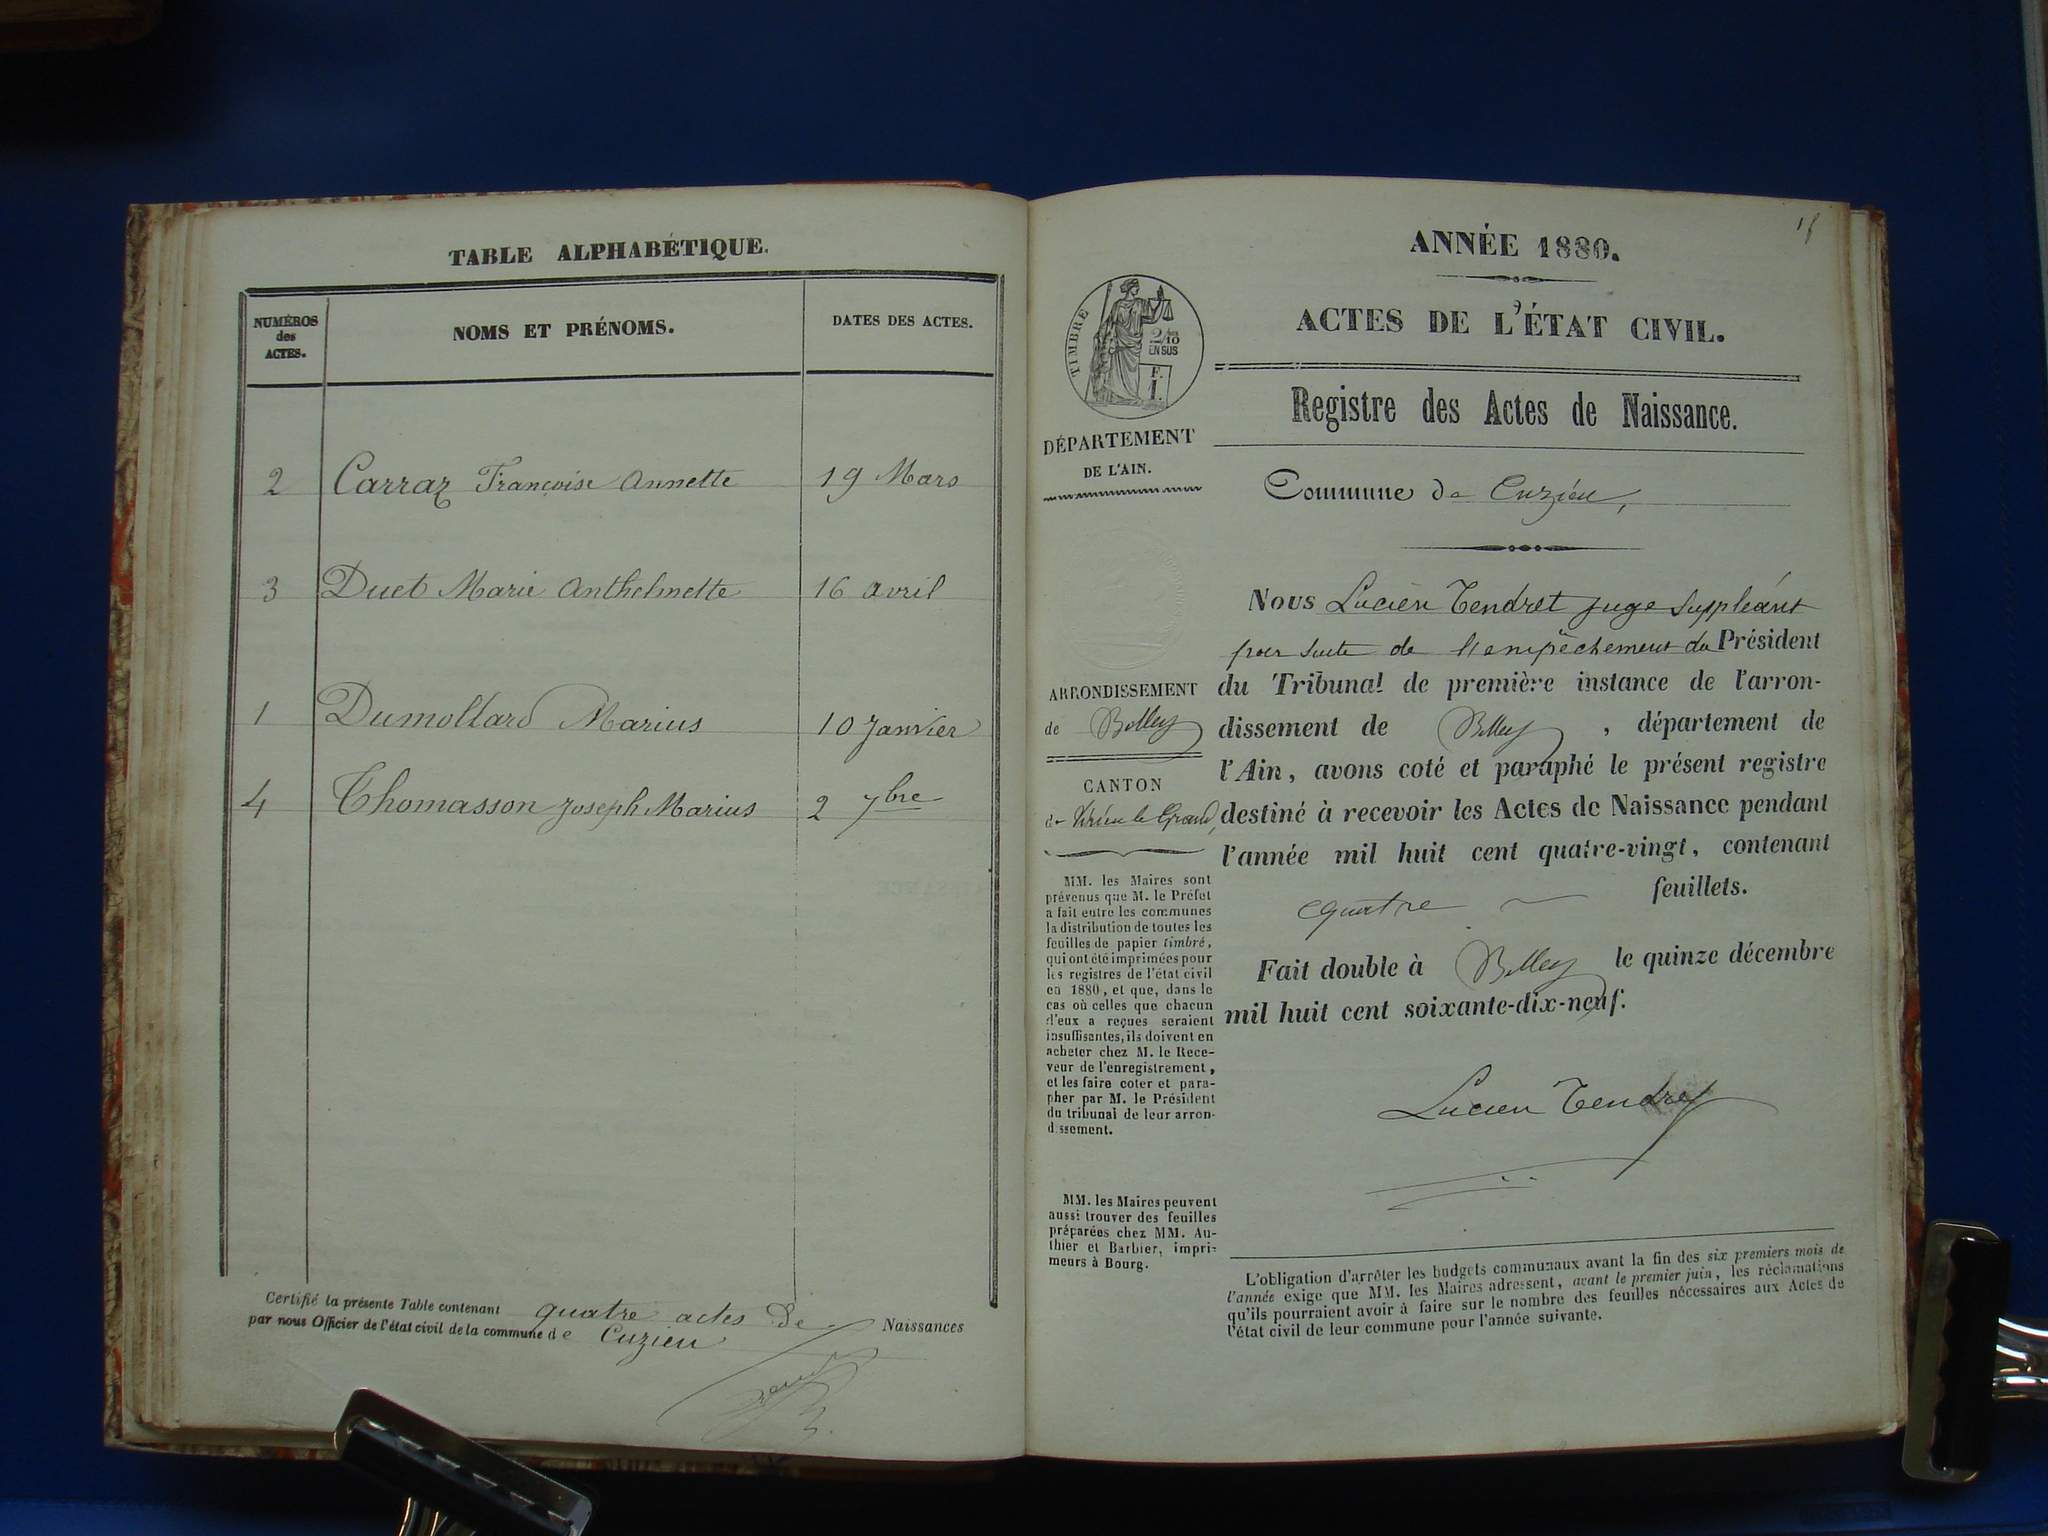 TABLE ALPHABÉTIQUE.
NUMÉROS
des
ACTES.
NOMS ET PRÉNOMS.
DATES DES ACTES.
2 Carraz Françoise Annette 19 Mars
3 Duet Marie Anthelmette 16 avril
1 Dumollard Marius 10 Janvier
4 Thomasson Joseph Marius 2 7bre
Certifié la présente Table contenant quatre actes de Naissances
par nous Officier de l'état civil de la commune de Cuzieu
18
ANNÉE 1880.
ACTES DE L'ÉTAT CIVIL.
Registre des Actes de Naissance.
Commune de Cuzieu,
TIMBRE
2/10
EN SUS
F.
1.
DÉPARTEMENT
DE L'AIN.
ARRONDISSEMENT
de Belley
CANTON
de Virieu le Grand,
MM. les Maires sont
prévenus que M. le Préfet
a fait entre les communes
la distribution de toutes les
feuilles de papier timbré,
qui ont été imprimées pour
les registres de l'état civil
en 1880, et que, dans le
cas où celles que chacun
d'eux a reçues seraient
insuffisantes, ils doivent en
acheter chez M. le Rece-
veur de l'enregistrement,
et les faire coter et para-
pher par M. le Président
du tribunal de leur arron-
dissement.
MM. les Maires peuvent
aussi trouver des feuilles
préparées chez MM. Au-
thier et Barbier, impri-
meurs à Bourg.
Nous Lucien Tendret juge suppléant
pour suite de l'empêchement du Président
du Tribunal de première instance de l'arron-
dissement de Belley, département de
l'Ain, avons coté et paraphé le présent registre
destiné à recevoir les Actes de Naissance pendant
l'année mil huit cent quatre-vingt, contenant
quatre feuillets.
Fait double à Belley le quinze décembre
mil huit cent soixante-dix-neuf.
Lucien Tendret
L'obligation d'arrêter les budgets communaux avant la fin des six premiers mois de
l'année exige que MM. les Maires adressent, avant le premier juin, les réclamations
qu'ils pourraient avoir à faire sur le nombre des feuilles nécessaires aux Actes de
l'état civil de leur commune pour l'année suivante.